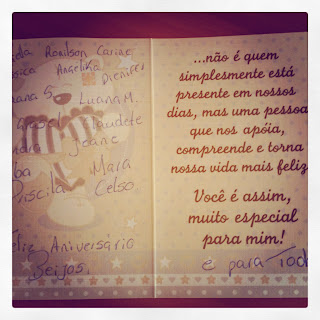 Ronilson Carine
Angelika
Dienifer
Luana M.
Claudete
Joane
Mara
Priscila Celso
Feliz Aniversário
Beijos
...não é quem
simplesmente está
presente em nossos
dias, mas uma pessoa
que nos apóia,
compreende e torna
nossa vida mais feliz
Você é assim,
muito especial
para mim!
e para Tod